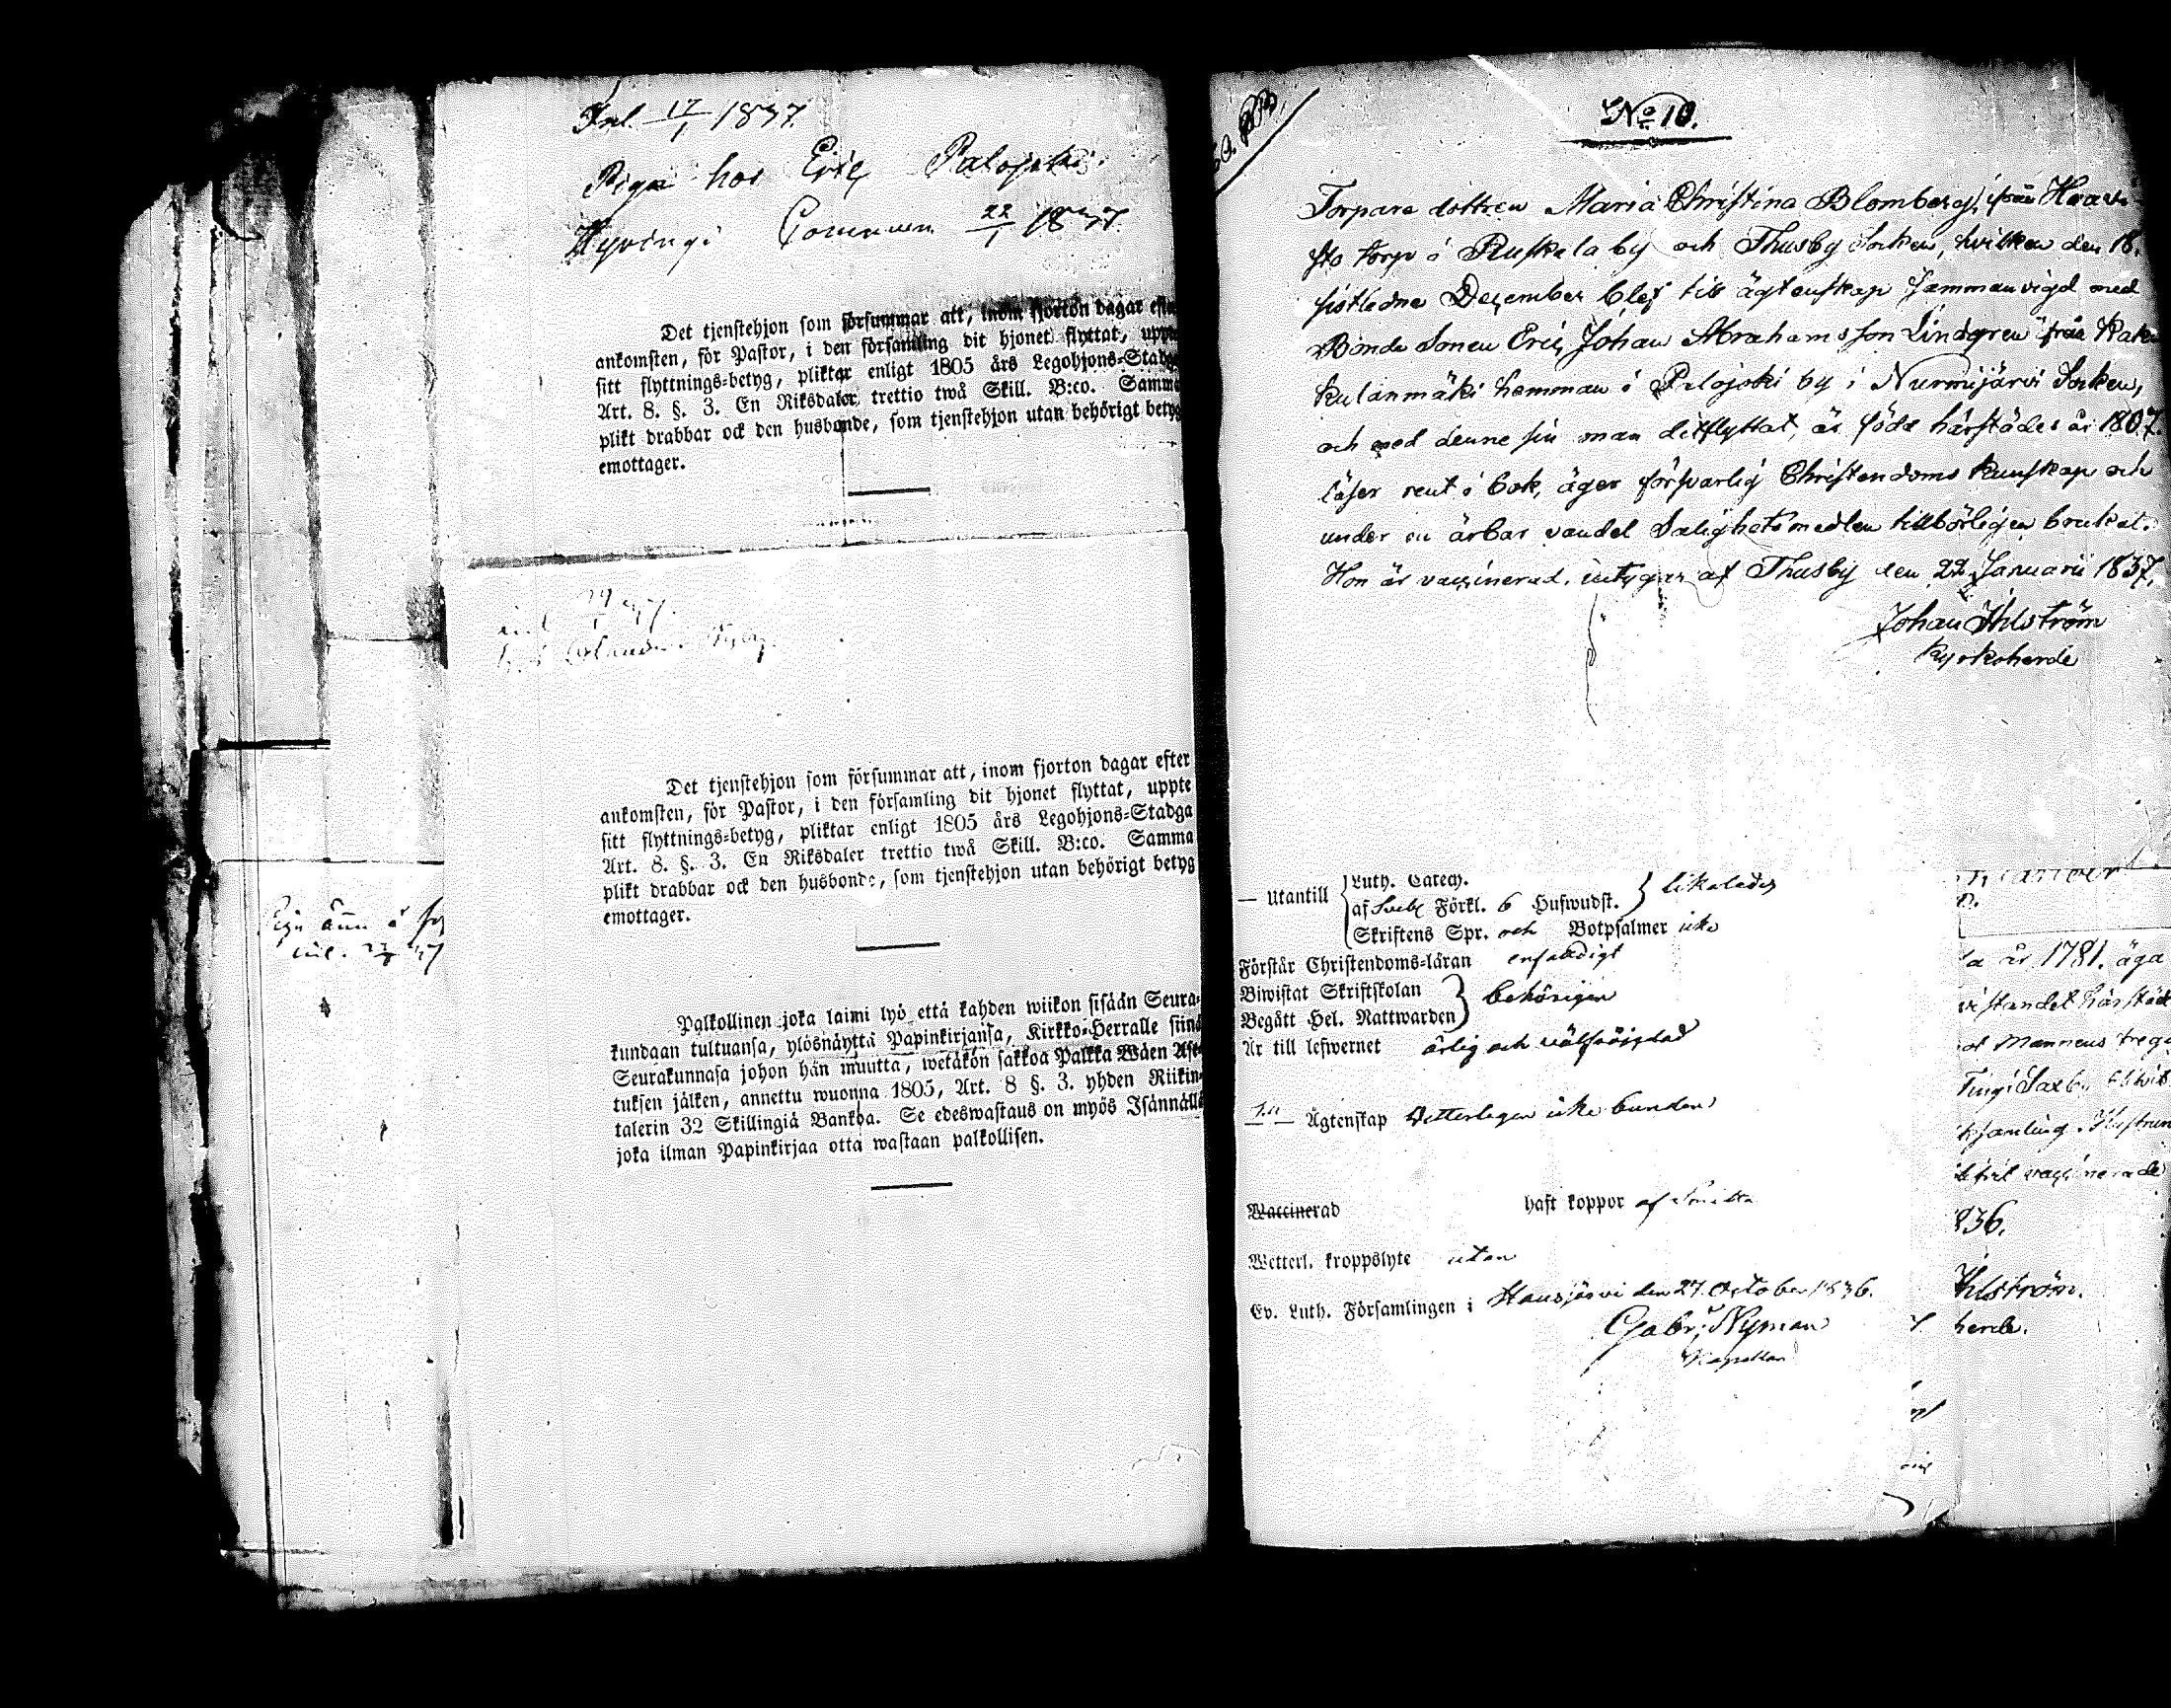 Inl. 17/1 1837.
Piga hos Eric Palojoki
Hyvinge Commun 22/1 1837.
Det tjenstehjon som försummar att, inom fjorton dagar efter
ankomsten, för Pastor, i den församling dit hjonet flyttat, uppte
sitt flyttnings-betyg, pliktar enligt 1805 års Legohjons-Stadga
Art. 8. §. 3. En Riksdaler trettio twå Skill. B:co. Samma
plikt drabbar ock den husbonde, som tjenstehjon utan behörigt betyg
emottager.
Det tjenstehjon som försummar att, inom fjorton dagar efter
ankomsten, för Pastor, i den församling dit hjonet flyttat, uppte
sitt flyttnings-betyg, pliktar enligt 1805 års Legohjons-Stadga
Art. 8. §. 3. En Riksdaler trettio twå Skill. B:co. Samma
plikt drabbar ock den husbonde, som tjenstehjon utan behörigt betyg
emottager.
Palkollinen joka laimi lyö että kahden wiikon sisään Seura-
kundaan tultuansa, ylösnäyttä Papinkirjansa, Kirkko-Herralle siinä
Seurakunnasa johon hän muutta, wetäkön sakkoa Palkka Wäen Ase-
tuksen jälken, annettu wuonna 1805, Art. 8 §. 3. yhden Riikin-
talerin 32 Skillingiä Bankoa. Se edeswastaus on myös Isännällä
joka ilman Papinkirjaa otta wastaan palkollisen.
No 10.
Torpare dottren Maria Christina Blomberg, ifrån Haavi-
sto torp i Ruskela by och Thusby Socken, hvilken den 18.
sistledne Dezember blef till ägtenskap sammanvigd med
Bonde Sonen Eric Johan Abrahamsson Lindgren från Kata
kulanmäki hemman i Palojoki by i Nurmijärvi Socken,
och med denne sin man ditflyttat, är född härstädes år 1807.
läser rent i bok, äger försvarlig Christendoms kunskap och
under en ärbar vandel Salighetsmedlen tillbörligen brukat.
Hon är vaccinerad, intygar af Thusby den 22 Januarii 1837.
Johan Ihlström
Kyrkoherde
— utantill Luth. Catech.
af Sveb. Förkl. 6 Huswudst. likaledes
Skriftens Spr. och Botpsalmer icke
Förstår Christendoms-läran enfaldigt
Biwistat Skriftskolan
Begått Hel. Nattwarden behörigen
Är till lefwernet ärlig och välfräjdad
Ägtenskap Vetterligen icke bunden
Waccinerad haft koppor af Smitta
Wetterl. kroppslyte utan
Ev. Luth. Församlingen i Hausjärvi den 27. October 1836.
Gabr. Nyman
Kapellan
a år 1781. äga
vistandet härstäd
Mannens
vaccinerade
836.
Ihlström.
herde.